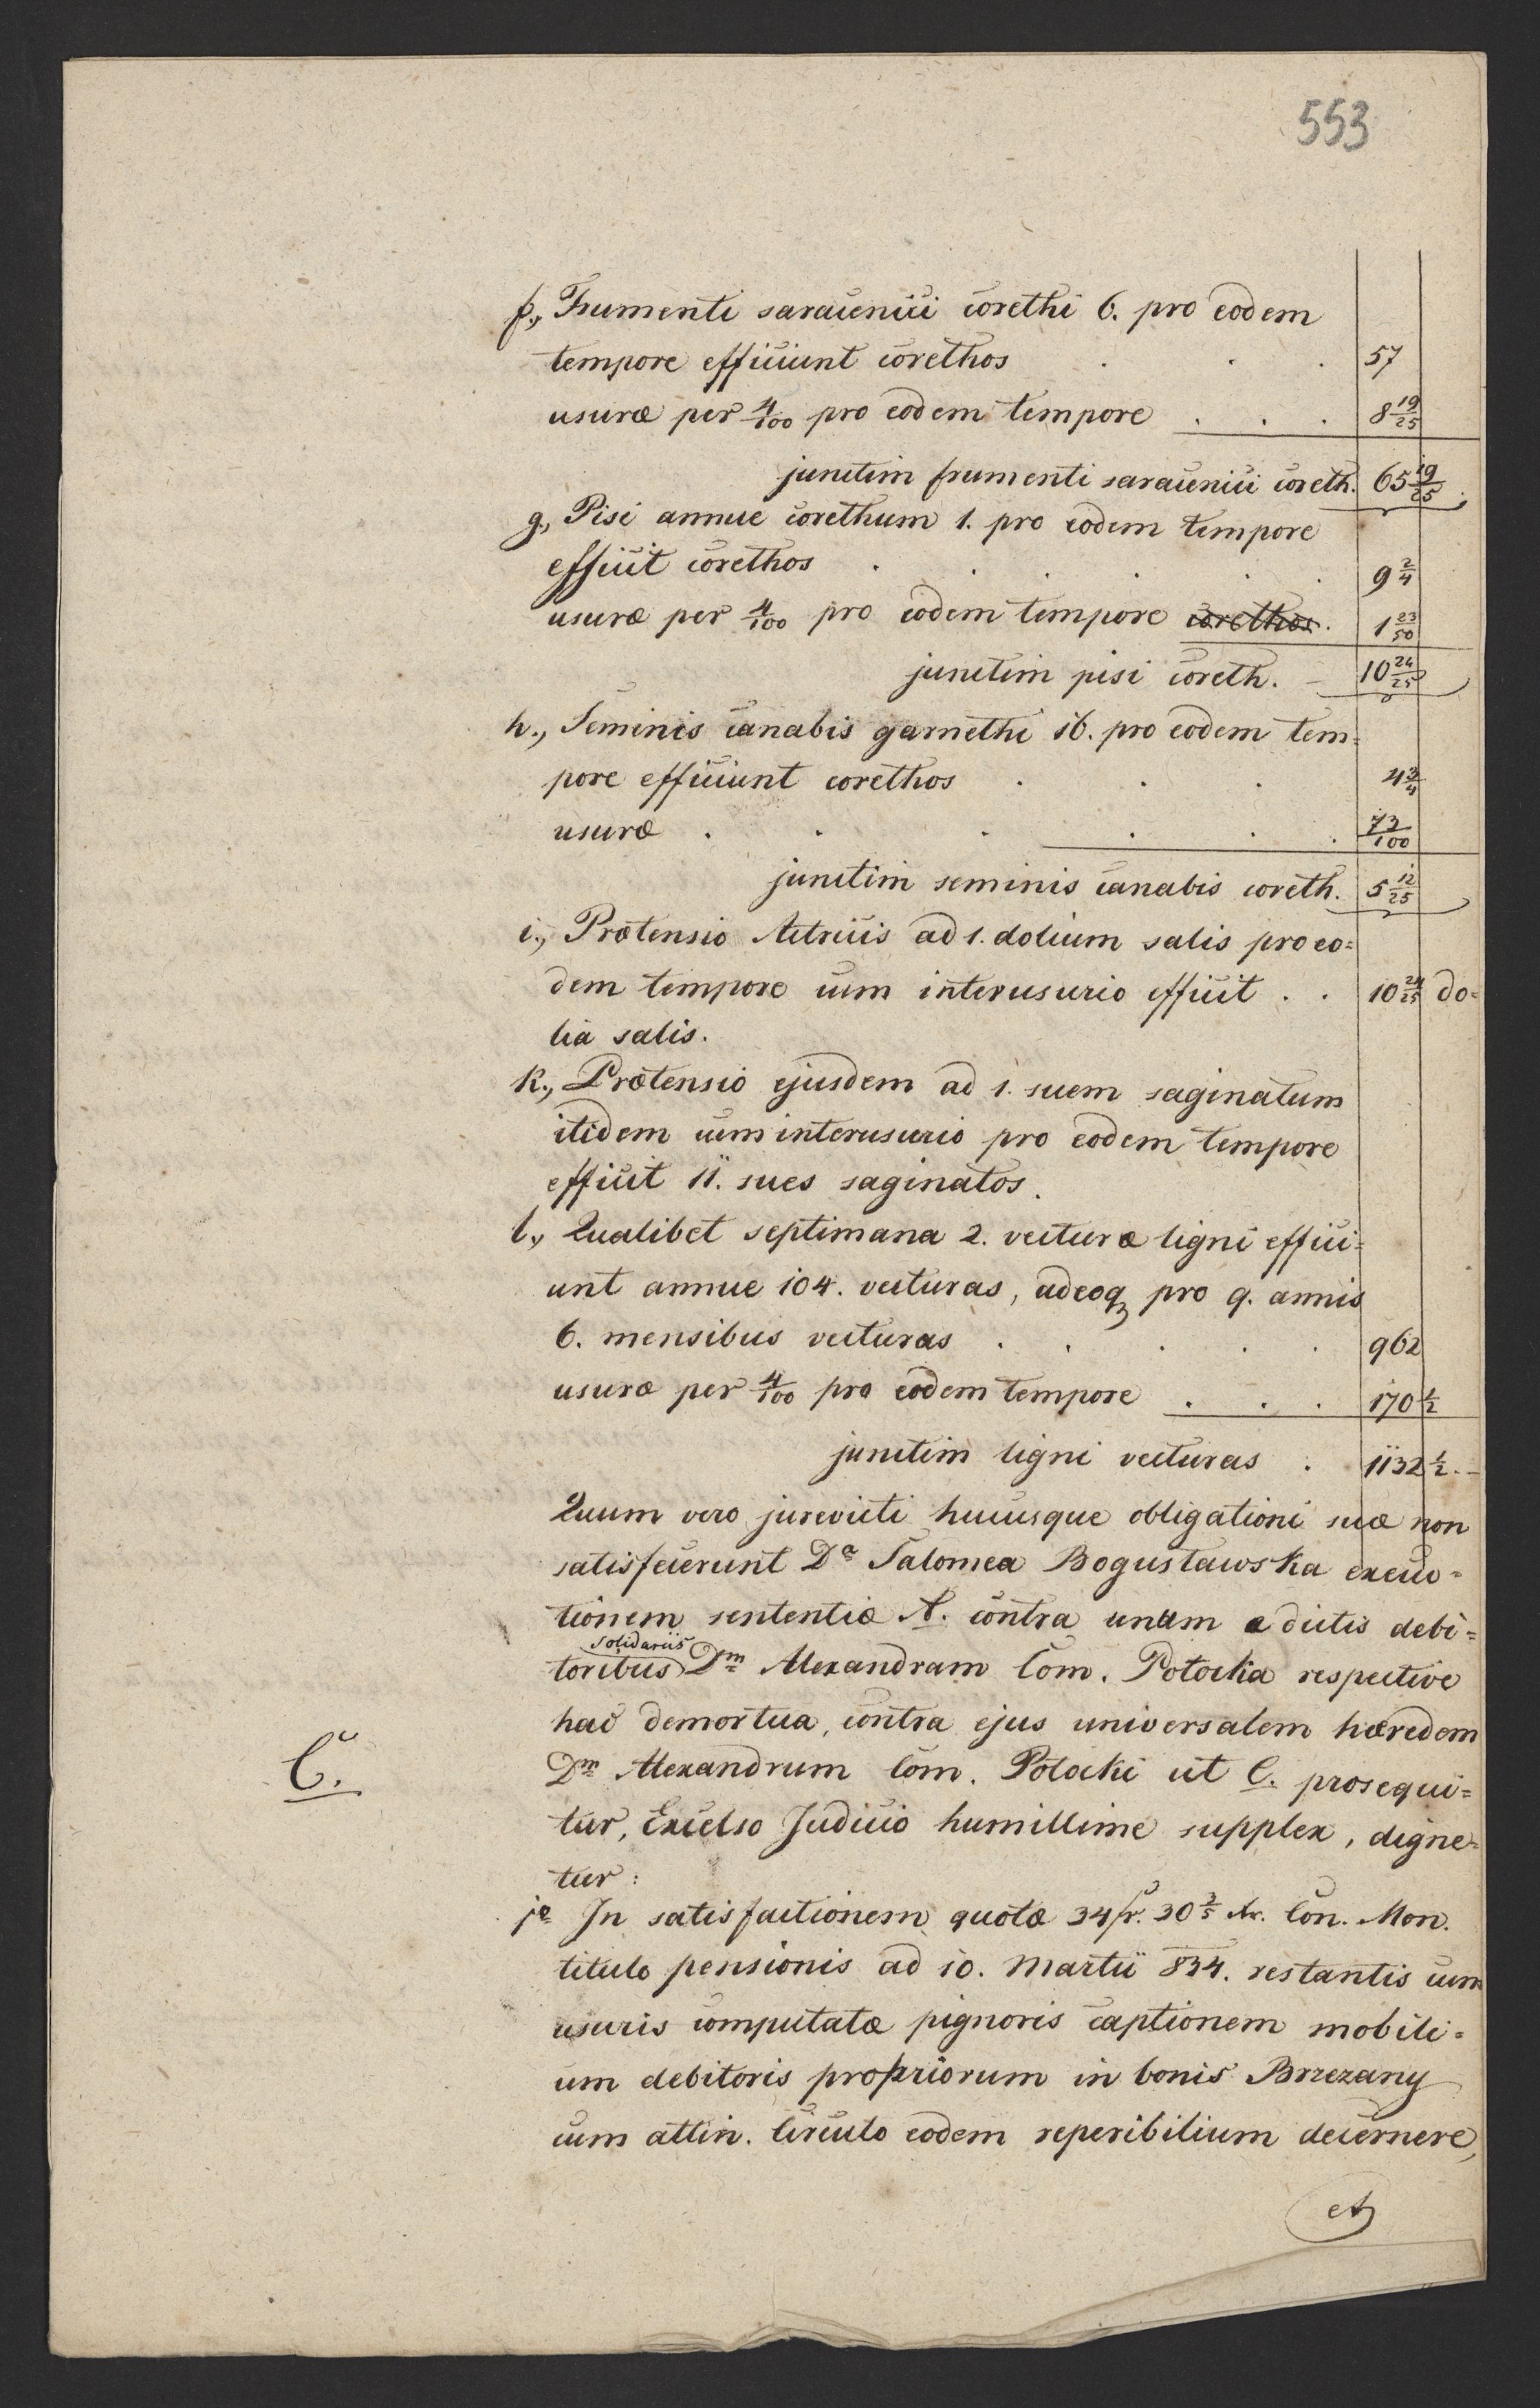 553
f., Frumenti saracenici corethi 6. pro eodem
tempore efficiunt corethos . . . 57
usuræ per 4/100 pro eodem tempore . . . 8 19/25
junctim frumenti saracenici coreth. 65 19/25
g., Pisi annue corethum 1. pro eodem tempore
efficit corethos . . . . . . 9 2/4
usuræ per 4/100 pro eodem tempore corethos. 1 23/50
junctim pisi coreth. – 10 24/25
h., Seminis canabis garnethi 16. pro eodem tem=
pore efficiunt corethos . . . 4 3/4
usuræ . . . . . . 73/100
junctim seminis canabis coreth. 5 12/25
i., Prætensio Actricis ad 1. dolium salis pro eo=
dem tempore cum interusurio efficit . . 10 24/25 do=
lia salis.
k., Prætensio ejusdem ad 1. suem saginatum
itidem cum interusurio pro eodem tempore
efficit 11. sues saginatos.
l., Qualibet septimana 2. vecturæ ligni effici=
unt annue 104. vecturas, adeoq3 pro 9. annis
6. mensibus vecturas . . . . . 962
usuræ per 4/100 pro eodem tempore . . . 170 1/2
junctim ligni vecturas . 1132 1/2. –
Quum vero jurevicti hucusque obligationi suæ non
satisfecerunt Da Salomea Bogusławska execu=
tionem sententiæ A. contra unam e dictis debi=
solidariis
toribus Dm Alexandram Com. Potocka respective
hac demortua, contra ejus universalem hæredem
C.
Dm Alexandrum Com. Potocki ut C. prosequi=
tur, Excelso Judicio humillime supplex, digne=
tur:
1o In satisfactionem quotæ 34 fr. 30 3/5 xr. Con. Mon.
titulo pensionis ad 10. Martii 834. restantis cum
usuris computatæ pignoris captionem mobili=
um debitoris propriorum in bonis Brzezany
cum attin. Circulo eodem reperibilium decernere,
et